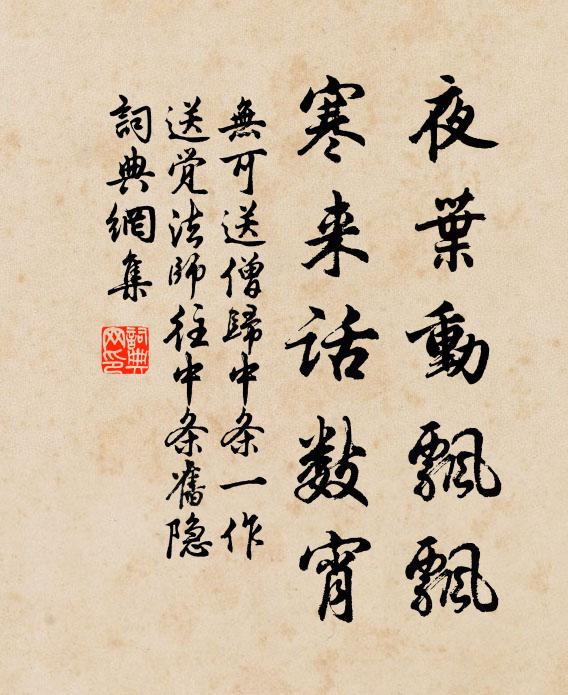 夜葉動飄飄
寒来话数宵
無可送僧歸中条一作
送覚法師往中条舊隐
詞典網集
詞典网印